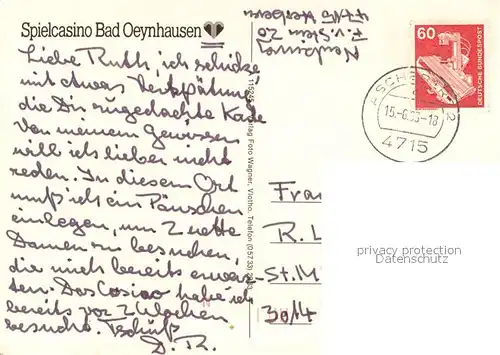 Spielcasino Bad Oeynhausen
Liebe Ruth, ich schicke
mit etwas Verspätung
die Dir zugedachte Karte
Von meinem Gewissen
will ich lieber nicht
reden. In diesem Ort
muß ich ein Päuschen
einlegen, um 2 nette
Damen zu besuchen,
die mich bereits erwar-
ten. Das Casino habe ich
bereits vor 2 Wochen
besucht. Tschüß
D. R.
F. v. Stein 20
4715
Foto Wagner, Vlotho. Telefon (05733)
60
DEUTSCHE BUNDESPOST
15.-6.
-18
4715
Frau
R. L
-St. M
3014
privacy protection
Datenschutz